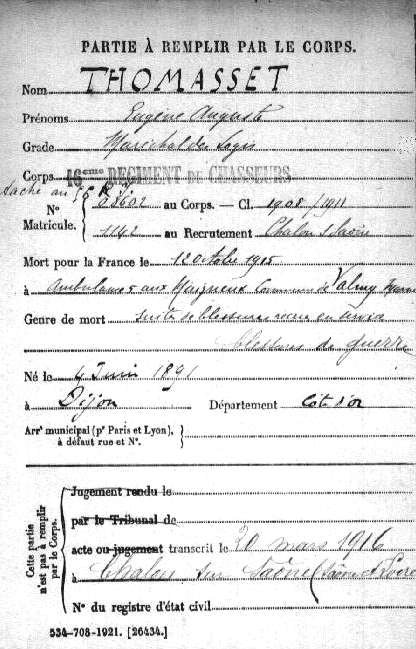 PARTIE À REMPLIR PAR LE CORPS.
Nom THOMASSET
Prénoms Eugène Auguste
Grade Maréchal des Logis
Corps 16eme REGIMENT DE CHASSEURS
N° au Corps. — Cl. 1908/1911
Matricule. 1142 au Recrutement Chalon s/ Saône
Mort pour la France le 12 Octobre 1915
à Ambulance 5 aux Maigneux Commune de Valmy Marne
Genre de mort Suite de blessures en service
blessures de guerre
Né le 4 Juin 1891
à Dijon Département Côte d'or
Arrt municipal (pr Paris et Lyon), à défaut rue et N°.
Cette partie n'est pas à remplir par le Corps.
Jugement rendu le
par le Tribunal de
acte ou jugement transcrit le 20 mars 1916
à Chalon sur Saône (Saône et Loire
N° du registre d'état civil
534-708-1921. [26434.]